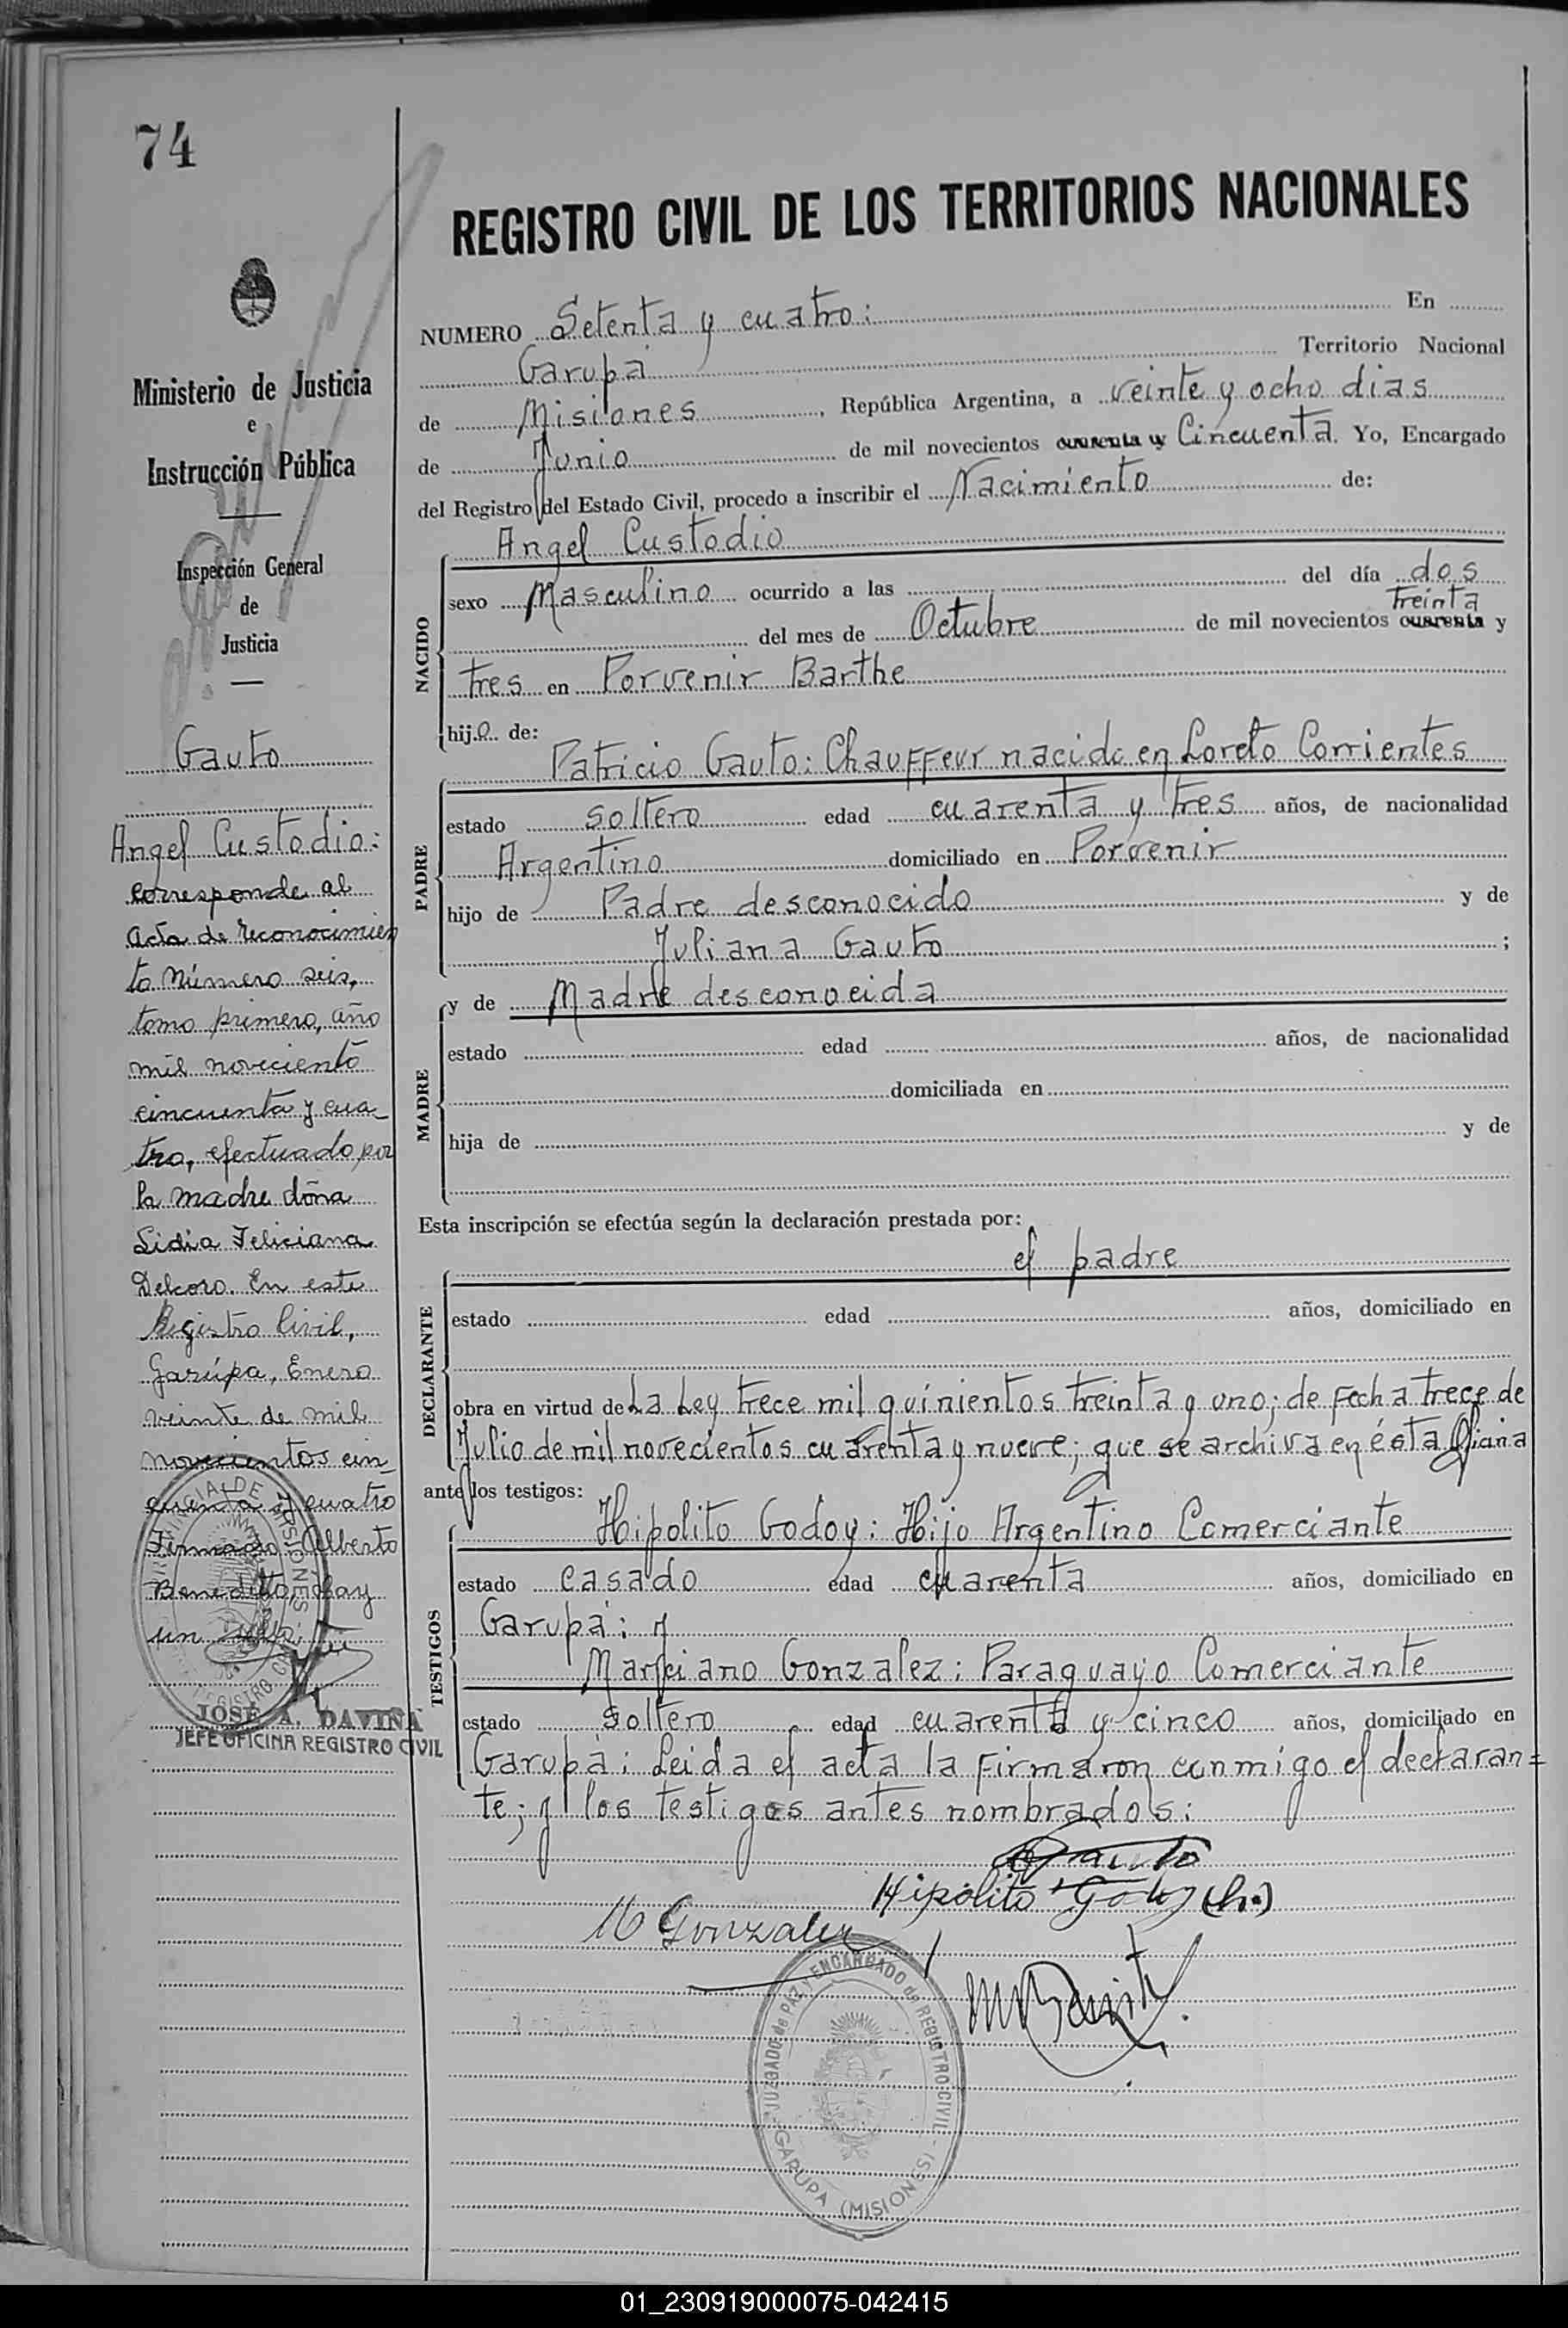 74
REGISTRO CIVIL DE LOS TERRITORIOS NACIONALES
Ministerio de Justicia
e
Instrucción Pública
Inspección General
de
Justicia
Gauto
Angel Custodio:
corresponde al
acta de reconocimien
to número seis,
tomo primero, año
mil noveciento
cincuenta y cua_
tro, efectuado por
la madre doña
Lidia Feliciana
Delcoro. En este
Registro Civil,
Garúpa, Enero
veinte de mil
novecientos cin_
cuenta y cuatro
Firmado Alberto
Beneditto, hay
un
JOSE A. DAVIÑA
JEFE OFICINA REGISTRO CIVIL
NUMERO Setenta y cuatro: En
Garupá Territorio Nacional
de Misiones, República Argentina, a veinte y ocho dias
de Junio de mil novecientos cuarenta y Cincuenta. Yo, Encargado
del Registro del Estado Civil, procedo a inscribir el Nacimiento de:
NACIDO
Angel Custodio
sexo Masculino ocurrido a las del día dos
treinta
del mes de Octubre de mil novecientos cuarenta y
tres en Porvenir Barthe
hijo de:
Patricio Gauto: Chauffeur nacido en Loreto Corrientes
PADRE
estado soltero edad cuarenta y tres años, de nacionalidad
Argentino domiciliado en Porvenir
hijo de Padre desconocido y de
Juliana Gauto ;
y de Madre desconocida
MADRE
estado edad años, de nacionalidad
domiciliada en
hija de y de
Esta inscripción se efectúa según la declaración prestada por:
el padre
DECLARANTE
estado edad años, domiciliado en
obra en virtud de La Ley trece mil quinientos treinta y uno; de fecha trece de
Julio de mil novecientos cuarenta y nueve; que se archiva en ésta Oficina
ante los testigos:
Hipolito Godoy: Hijo Argentino Comerciante
TESTIGOS
estado casado edad cuarenta años, domiciliado en
Garupá: y
Marciano Gonzalez: Paraguayo Comerciante
estado soltero edad cuarenta y cinco años, domiciliado en
Garupá: Leida el acta la firmaron conmigo el declaran=
te; y los testigos antes nombrados:
Gauto
Hipólito Godoy (h.)
M Gonzalez
JUZGADO de PAZ y ENCARGADO de REGISTRO CIVIL
GARUPA (MISIONES)
01_230919000075-042415